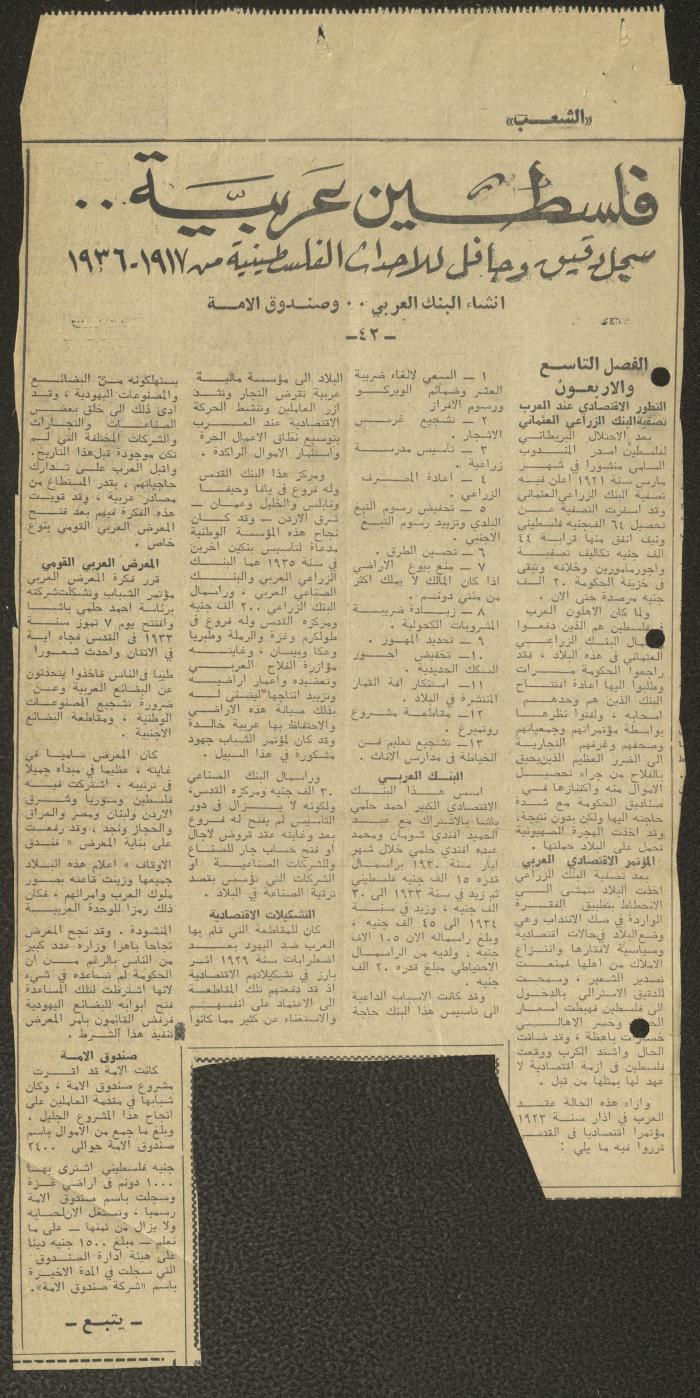 «الشعب»
فلسطين عربية ..
سجل دقيق وحافل للاحداث الفلسطينية من ١٩١٧-١٩٣٦
انشاء البنك العربي ٠٠ وصندوق الامة
- ٤٢ -
الفصل التاسع
والاربعون
التطور الاقتصادي عند العرب
تصفية البنك الزراعي العثماني
بعد الاحتلال البريطاني
لفلسطين اصدر المندوب
السامي منشورا في شهر
مارس سنة ١٩٢١ اعلن فيه
تصفية البنك الزراعي العثماني
وقد اسفرت التصفية عن
تحصيل ٦٤ الف جنيه فلسطيني
ونيف انفق منها قرابة ٤٤
الف جنيه تكاليف تصفية
واجور مأمورين وخلافه وتبقى
في خزينة الحكومة ٢٠ الف
جنيه مرصدة حتى الان .
ولما كان الاهلون العرب
فلسطين هم الذين دفعوا
مال البنك الزراعي
العثماني في هذه البلاد ، فقد
راجعوا الحكومة مرات
وطلبوا اليها اعادة افتتاح
البنك الذين هم وحدهم
اصحابه ، ولفتوا نظرها
بواسطة مؤتمراتهم وجمعياتهم
وصحفهم وغرفهم التجارية
الى الضرر العظيم الذي يحيق
بالفلاح من جراء تحصيل
الاموال منه واكتنازها في
صناديق الحكومة مع شدة
حاجته اليها ولكن بدون نتيجة،
وقد اخذت الهجرة الصهيونية
تحمل على البلاد حملتها .
المؤتمر الاقتصادي العربي
بعد تصفية البنك الزراعي
اخذت البلاد تتمشى الى
الانحطاط بتطبيق الفقرة
الواردة في صك الانتداب وهي
وضع البلاد في حالات اقتصادية
وسياسية لافقارها وانتزاع
الاملاك من اهلها فمنعت
تصدير الشعير ، وسمحت
للدقيق الاسترالي بالدخول
الى فلسطين فهبطت اسعار
وخسر الاهالي
باهظة ، وقد ضاقت
الحال واشتد الكرب ووقعت
فلسطين في ازمة اقتصادية لا
عهد لها بمثلها من قبل .
وازاء هذه الحالة عقد
العرب في اذار سنة ١٩٢٣
مؤتمرا اقتصاديا في القدس
قرروا فيه ما يلي :
١ - السعي لالغاء ضريبة
العشر وضمائم الويركو
ورسوم الافراز
٢ - تشجيع غرس
الاشجار .
٣ - تأسيس مدرسة
زراعية .
٤ - اعادة المصرف
الزراعي .
٥ - تخفيض رسوم التبغ
البلدي وتزييد رسوم التبغ
الاجنبي .
٦ - تحسين الطرق .
٧ - منع بيوع الاراضي
اذا كان المالك لا يملك اكثر
من مئتي دونم .
٨ - زيادة ضريبة
المشروبات الكحولية .
٩ - تحديد المهور .
١٠ - تخفيض اجور
السكك الحديدية .
١١ - استنكار آفة القمار
المنتشرة في البلاد .
١٢ - مقاطعة مشروع
روتمبرغ .
١٣ - تشجيع تعليم فن
الخياطة في مدارس الاناث .
البنك العربي
اسس هذا البنك
الاقتصادي الكبير احمد حلمي
باشا بالاشتراك مع عبد
الحميد افندي شومان ومحمد
عبده افندي حلمي خلال شهر
ايار سنة ١٩٣٠ براسمال
قدره ١٥ الف جنيه فلسطيني
ثم زيد في سنة ١٩٣٣ الى ٣٠
الف جنيه ، وزيد في سنة
١٩٣٤ الى ٤٥ الف جنيه ،
وبلغ راسماله الان ١٠٥ الاف
جنيه ، ولديه من الراسمال
الاحتياطي مبلغ قدره ٢٠ الف
جنيه .
وقد كانت الاسباب الداعية
الى تاسيس هذا البنك حاجة
البلاد الى مؤسسة مالية
عربية تقرض التجار وتشد
ازر العاملين وتنشط الحركة
الاقتصادية عند العرب
بتوسيع نطاق الاعمال الحرة
واستثمار الاموال الراكدة .
ومركز هذا البنك القدس
وله فروع في يافا وحيفا
ونابلس والخليل وعمان -
شرق الاردن - وقد كان
نجاح هذه المؤسسة الوطنية
مدعاة لتاسيس بنكين اخرين
في سنة ١٩٣٥ هما البنك
الزراعي العربي والبنك
الصناعي العربي ، وراسمال
البنك الزراعي ٢٠٠ الف جنيه
ومركزه القدس وله فروع في
طولكرم وغزة والرملة وطبريا
وعكا وبيسان ، وغايته
مؤازرة الفلاح العربي
وتعضيده واعمار اراضيه
وتزييد انتاجها ليتسنى له
بذلك صيانة هذه الاراضي
والاحتفاظ بها عربية خالدة
وقد كان لمؤتمر الشباب جهود
مشكورة في هذا السبيل .
وراسمال البنك الصناعي
٣٠ الف جنيه ومركزه القدس،
ولكونه لا يزال في دور
التاسيس لم يفتح له فروع
بعد وغايته عقد قروض لاجال
او فتح حساب جار للصناع
وللشركات الصناعية او
الشركات التي تؤسس بقصد
ترقية الصناعة في البلاد .
التشكيلات الاقتصادية
كان للمقاطعة التي قام بها
العرب ضد اليهود بعد
اضطرابات سنة ١٩٢٩ اثر
بارز في تشكيلاتهم الاقتصادية
اذ قد دفعتهم تلك المقاطعة
الى الاعتماد على انفسهم
والاستغناء عن كثير مما كانوا
يستهلكونه من البضائع
والمصنوعات اليهودية ، وقد
ادى ذلك الى خلق بعض
الصناعات والتجارات
والشركات المختلفة التي لم
تكن موجودة قبل هذا التاريخ.
واقبل العرب على تدارك
حاجياتهم ، بقدر المستطاع من
مصادر عربية ، وقد قويت
هذه الفكرة فيهم بعد فتح
المعرض العربي القومي بنوع
خاص .
المعرض العربي القومي
قرر فكرة المعرض العربي
مؤتمر الشباب وتشكلت شركته
برئاسة احمد حلمي باشا
وافتتح يوم ٧ تموز سنة
١٩٣٣ في القدس فجاء اية
في الاتقان واحدث شعورا
طيبا في الناس فاخذوا يتحدثون
عن البضائع العربية وعن
ضرورة تشجيع المصنوعات
الوطنية ، ومقاطعة البضائع
الاجنبية .
كان المعرض ساميا في
غايته ، عظيما في مبداه جميلا
في ترتيبه ، اشتركت فيه
فلسطين وسوريا وشرق
الاردن ولبنان ومصر والعراق
والحجاز ونجد ، وقد رفعت
على بناية المعرض « فندق
الاوقاف » اعلام هذه البلاد
جميعها وزينت قاعته بصور
ملوك العرب وامرائهم ، فكان
ذلك رمزا للوحدة العربية
المنشودة . وقد نجح المعرض
نجاحا باهرا وزاره عدد كبير
من الناس بالرغم من ان
الحكومة لم تساعده في شيء
لانها اشترطت لتلك المساعدة
فتح ابوابه للبضائع اليهودية
فرفض القائمون بامر المعرض
تنفيذ هذا الشرط .
صندوق الامة
كانت الامة قد اقرت
مشروع صندوق الامة ، وكان
شبابها في مقدمة العاملين على
انجاح هذا المشروع الجليل .
وبلغ ما جمع من الاموال باسم
صندوق الامة حوالي ٢٤٠٠
جنيه فلسطيني اشترى بها
١٠٠٠ دونم في اراضي غزة
وسجلت باسم صندوق الامة
رسميا ، وتستغل الان لحسابه
ولا يزال من ثمنها - على ما
نعلم - مبلغ ١٥٠٠ جنيه دينا
على هيئة ادارة الصندوق
التي سجلت في المدة الاخيرة
باسم «شركة صندوق الامة».
- يتبع -